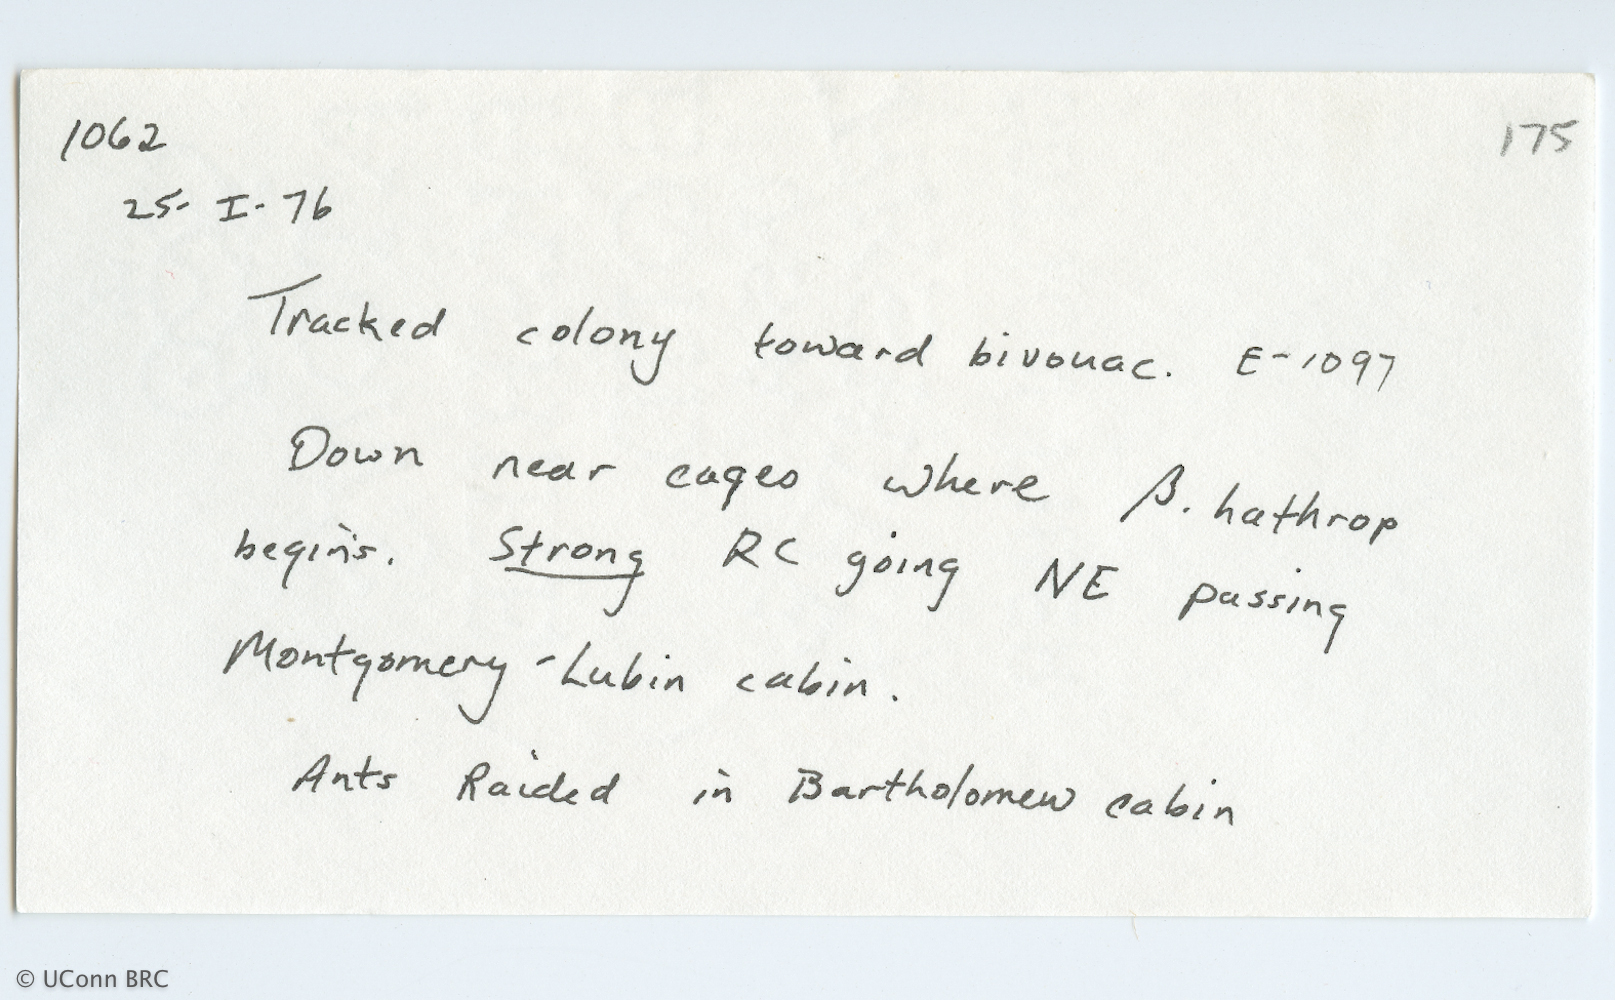 1062
175
25-I-76
Tracked colony toward bivouac. E-1097
Down near cages where B. hathrop
begins. Strong RC going NE passing
Montgomery-Lubin cabin.
Ants Raided in Bartholomew cabin
© UConn BRC